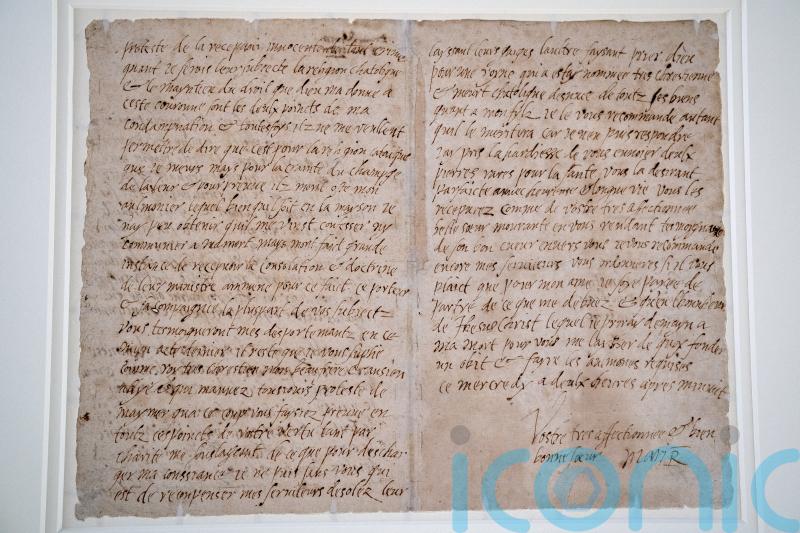 proteste de la recepvoir innocente de tout crime
quant je serois leur subjecte la religion chatolique
& le mayntien du droit que dieu m'a donné a
ceste couronne sont les deulx points de ma
condampnation & toutesfoys ilz ne me veullent
permettre de dire que cest pour la religion catolique
que je meurs mays pour la crainte du champge
de la leur & pour preuve ilz mont oste mon
aulmonier lequel bien quil soit en la mayson je
nay peu obtenir quil me vinst confesser ny
communier a ma mort mays mont fait grande
instance de recepvoir la consolation & doctrine
de leur ministre ammene pour ce fait ce porteur
& sa compaignie la pluspart de vos subjectz
vous tesmoigneront mes desportemantz en ce
mien acte dernier il reste que je vous suplie
comme roy tres chrestien mon beau frere & ansien
allye & qui mavvez tousjours proteste de
maymer qua ce coup vous faysiez preuve en
toutz ces points de vostre vertu tant par
charité me soulageant de ce que pour descharger
ma conssiance je ne puis sans vous qui
est de recompenser mes serviteurs desolez leur
layssant leurs gaiges laultre faysant prier dieu
pour une royne qui a estay nommee tres chrestienne
& meurt chatolique desnuee de toutz ses biens
quant a mon filz je le vous recommande autant
quil le meritera car je nen puis respondre
jay pris la hardiesse de vous envoier deulx
pierres rares pour la sante vous la desirant
parfaicte avec heureuse & longue vie vous les
recepvrez comme de vostre tres affectionnee
belle sœur mourante en vous rendant tesmoygnage
de son bon cueur envers vous je vous recommande
encore mes serviteurs vous ordonneres si il vous
plaict que pour mon ame je soye payee de
partye de ce que me debvez & qu'en l'honneur
de Jhesus Christ lequel je priray demayn a
ma mort pour vous me laysser de quoy fonder
un obit & fayre les aumosnes requises
ce mercredy a deulx heures apres minuit
Vostre tres affectionnee & bien
bonne sœur MARI R
iconic